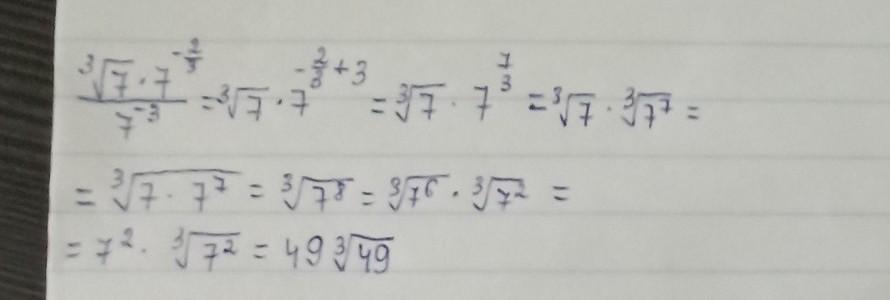 \frac{\sqrt[3]{7} \cdot 7^{-\frac{2}{3}}}{7^{-3}} = \sqrt[3]{7} \cdot 7^{-\frac{2}{3}+3} = \sqrt[3]{7} \cdot 7^{\frac{7}{3}} = \sqrt[3]{7} \cdot \sqrt[3]{7^7} =
= \sqrt[3]{7 \cdot 7^7} = \sqrt[3]{7^8} = \sqrt[3]{7^6} \cdot \sqrt[3]{7^2} =
= 7^2 \cdot \sqrt[3]{7^2} = 49 \sqrt[3]{49}